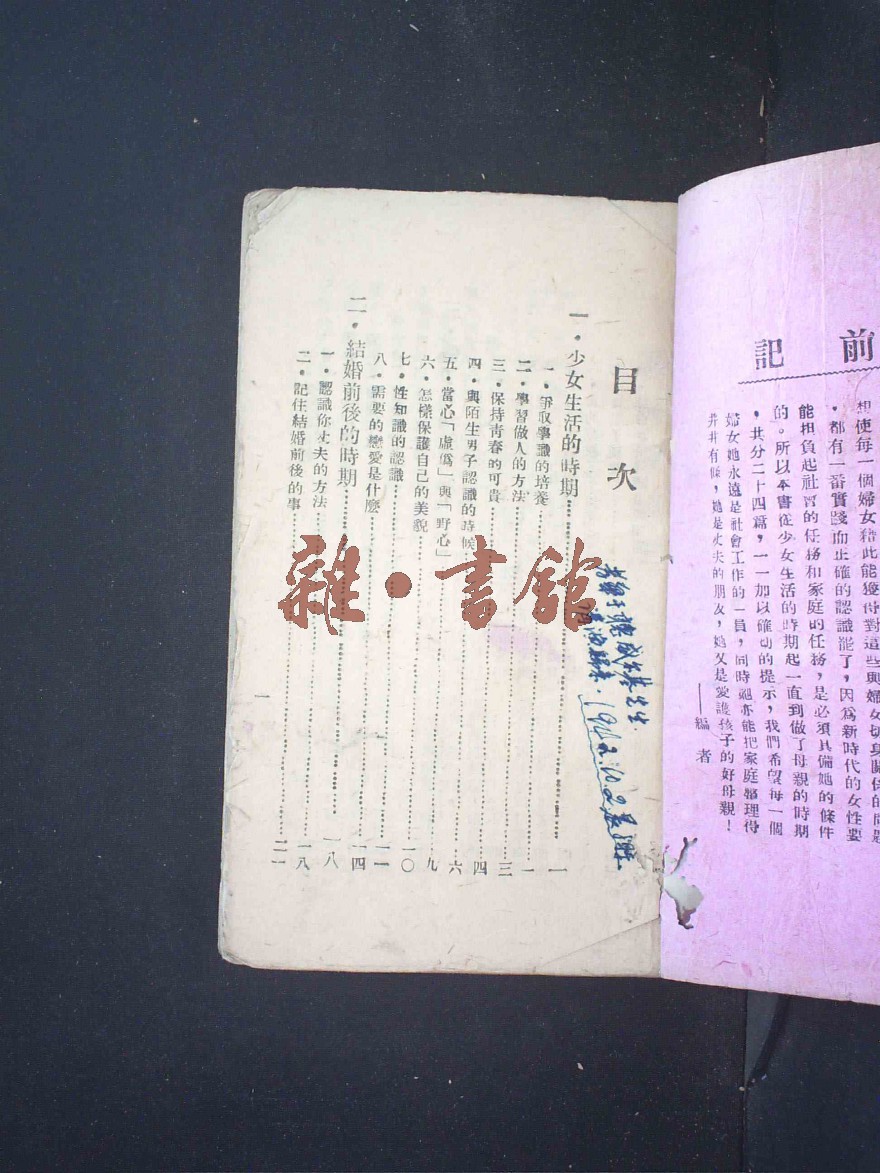 前記
想使每一個婦女藉此能獲得對這些與婦女切身關係的問題
,都有一番實踐而正確的認識罷了,因為新時代的女性要
能担負起社會的任務和家庭的任務,是必須具備她的條件
的。所以本書從少女生活的時期起一直到做了母親的時期
,共分二十四篇,一一加以確切的提示,我們希望每一個
婦女她永遠是社會工作的一員,同時她亦能把家庭整理得
井井有條,她是丈夫的朋友,她又是愛護孩子的好母親!
——編者
目次
一·少女生活的時期……一
一·爭取學識的培養……一
二·學習做人的方法……一
三·保持青春的可貴……三
四·與陌生男子認識的時候……四
五·當心「虛偽」與「野心」……六
六·怎樣保護自己的美貌……九
七·性知識的認識……一〇
八·需要的戀愛是什麼……一一
二·結婚前後的時期……一四
一·認識你丈夫的方法……一八
二·記住結婚前後的事……一八
二一
一
先生
1962.10.2
雜·書館